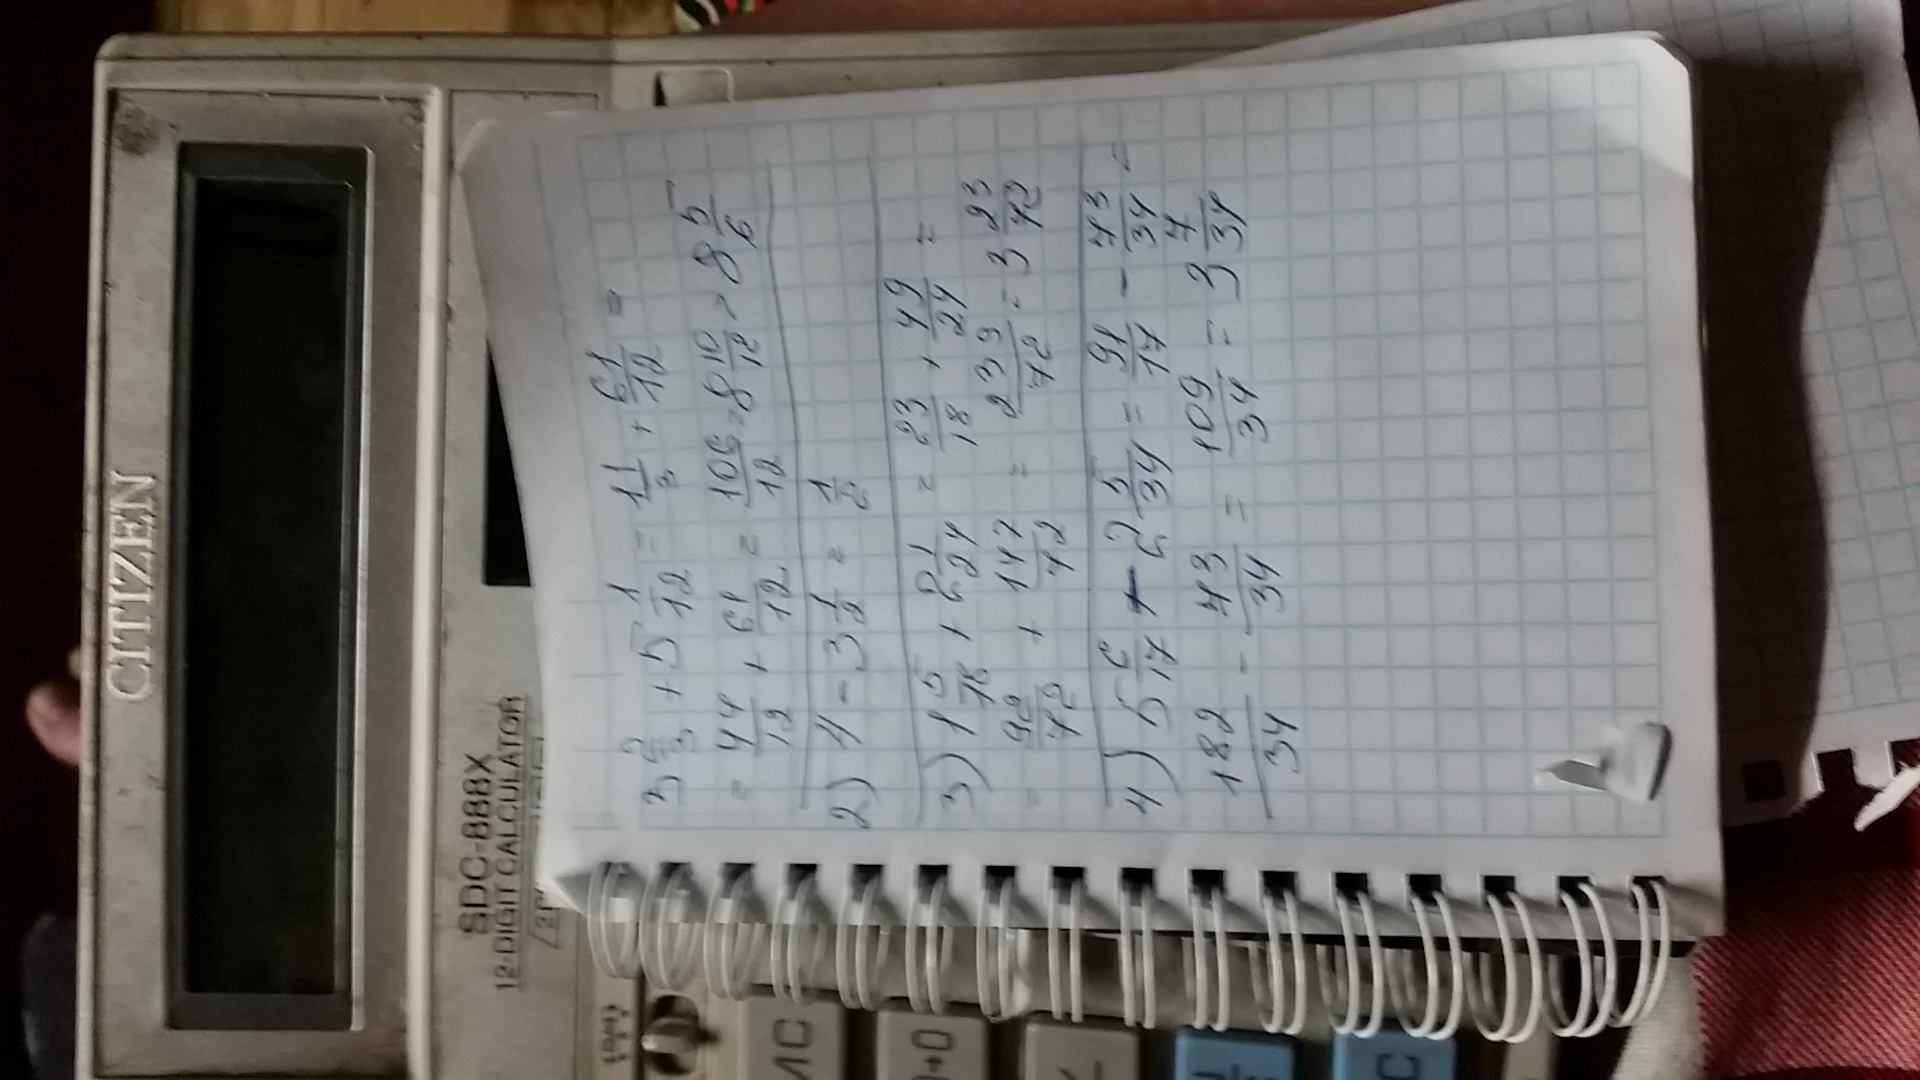 CITIZEN
SDC-888X
12-DIGIT CALCULATOR
3 2/3 + 5 1/12 = 11/3 + 61/12 =
= 44/12 + 61/12 = 106/12 = 8 10/12 = 8 5/6
2) 4 - 3 1/2 = 1/2
3) 1 5/18 + 2 1/24 = 23/18 + 49/24 =
= 92/72 + 147/72 = 239/72 = 3 23/72
4) 5 6/17 - 2 5/34 = 91/17 - 73/34 =
182/34 - 73/34 = 109/34 = 3 7/34